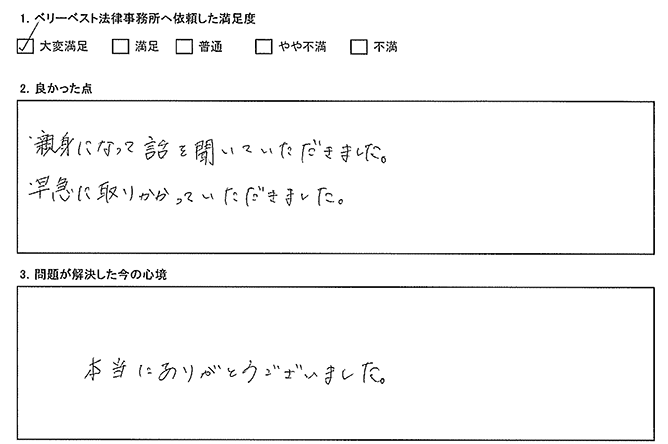 1. ベリーベスト法律事務所へ依頼した満足度
☑ 大変満足 □ 満足 □ 普通 □ やや不満 □ 不満
2. 良かった点
・親身になって話を聞いていただきました。
・早急に取りかかっていただきました。
3. 問題が解決した今の心境
本当にありがとうございました。